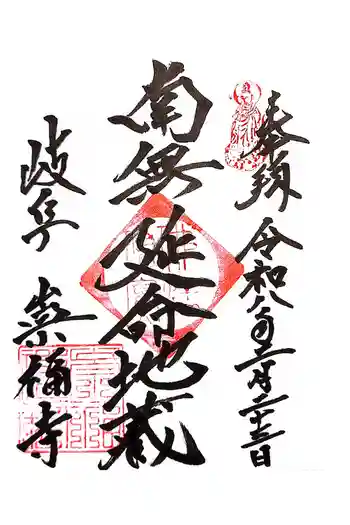 奉拝 令和八年二月二十三日
南無延命地蔵
岐阜 崇福寺